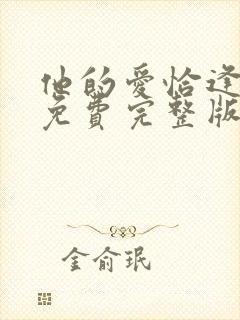 他的爱恰逢
免费完整版
金俞珉